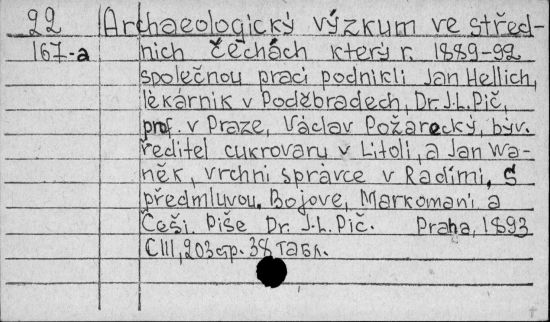 22 Archaeologický výzkum ve střed-
167-a ních Čechách který r. 1889-92
společnou prací podnikli Jan Hellich,
lékárník v Poděbradech, Dr. J.L. Píč,
prof. v Praze, Václav Požarecký, býv.
ředitel cukrovaru v Litoli, a Jan Wa-
něk, vrchní správce v Radimi, S
předmluvou. Bojove, Markomani a
Češi. Píše Dr. J.L. Píč. Praha, 1893
CIII, 203 стр. 38 табл.